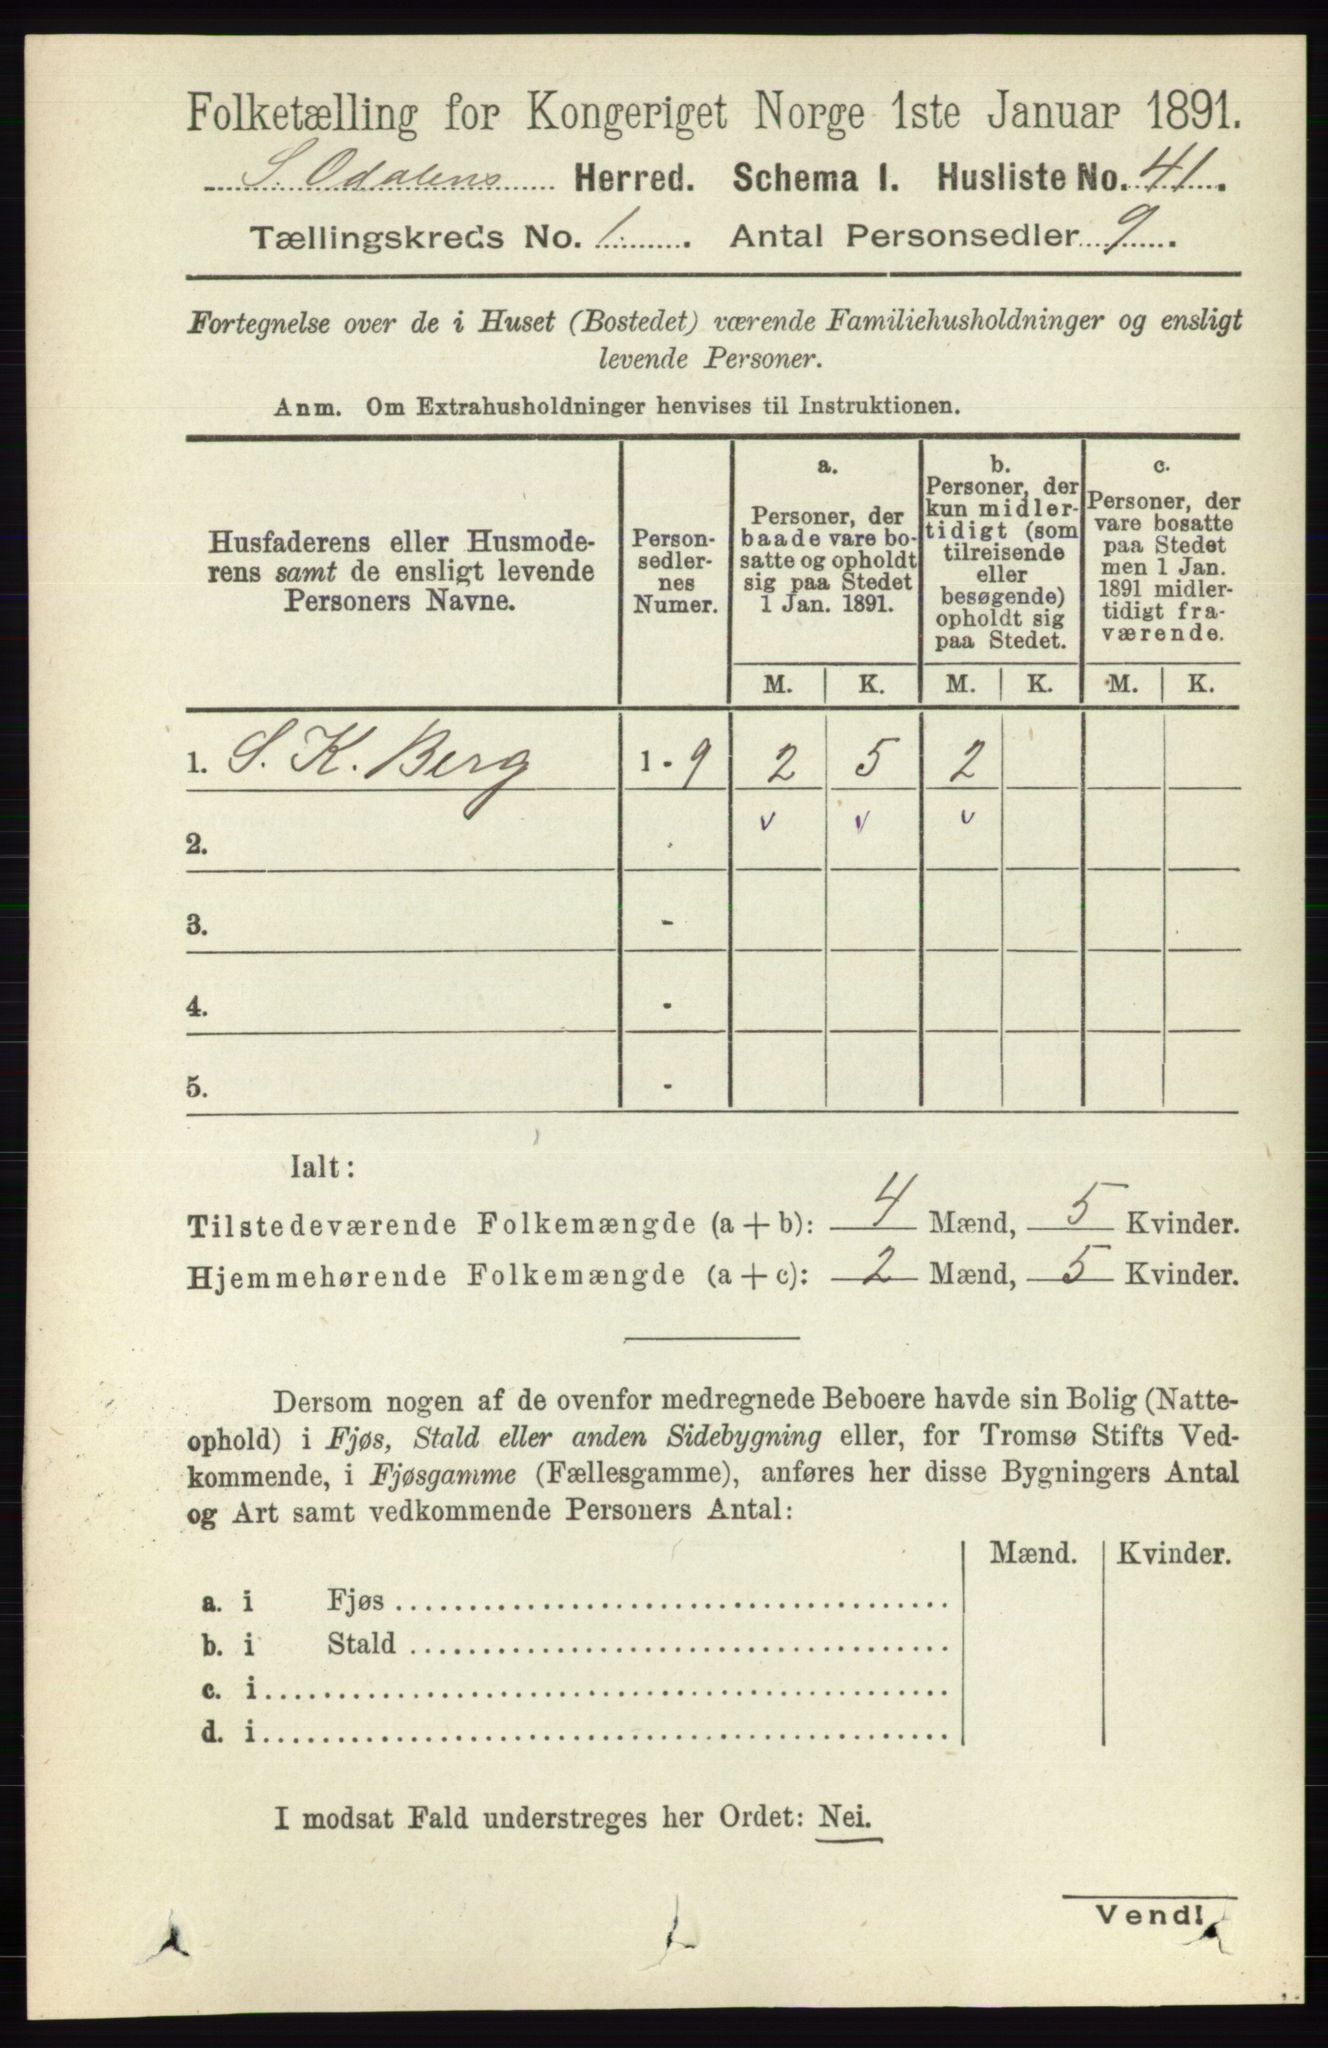 Folketælling for Kongeriget Norge 1ste Januar 1891.
S. Odalens Herred. Schema I. Husliste No. 41.
Tællingskreds No. 1. Antal Personsedler 9.
Fortegnelse over de i Huset (Bostedet) værende Familiehusholdninger og ensligt
levende Personer.
Anm. Om Extrahusholdninger henvises til Instruktionen.
Husfaderens eller Husmode-
rens samt de ensligt levende
Personers Navne.
Person-
sedler-
nes
Numer.
a.
Personer, der
baade vare bo-
satte og opholdt
sig paa Stedet
1 Jan. 1891.
b.
Personer, der
kun midler-
tidigt (som
tilreisende
eller
besøgende)
opholdt sig
paa Stedet.
c.
Personer, der
vare bosatte
paa Stedet
men 1 Jan.
1891 midler-
tidigt fra-
værende.
M. K. M. K. M. K.
1. S. K. Berg 1 - 9 2 5 2
v v v
2. -
3. -
4. -
5. -
Ialt:
Tilstedeværende Folkemængde (a + b): 4 Mænd, 5 Kvinder.
Hjemmehørende Folkemængde (a + c): 2 Mænd, 5 Kvinder.
Dersom nogen af de ovenfor medregnede Beboere havde sin Bolig (Natte-
ophold) i Fjøs, Stald eller anden Sidebygning eller, for Tromsø Stifts Ved-
kommende, i Fjøsgamme (Fællesgamme), anføres her disse Bygningers Antal
og Art samt vedkommende Personers Antal:
Mænd. Kvinder.
a. i Fjøs
b. i Stald
c. i
d. i
I modsat Fald understreges her Ordet: Nei.
Vend!